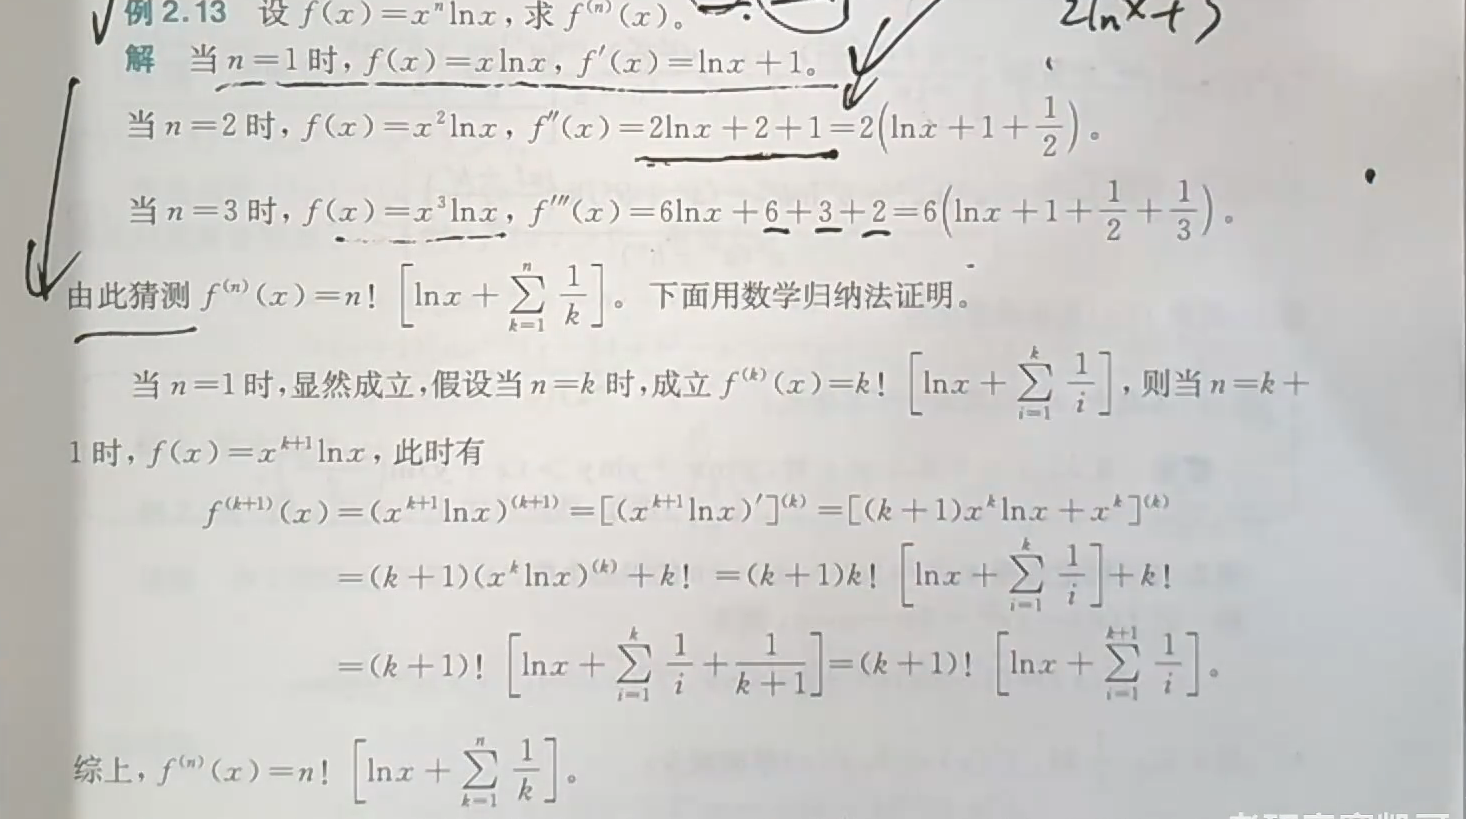 例2.13 设 f(x)=xⁿlnx，求 f⁽ⁿ⁾(x)。
2lnx+3
解 当 n=1时，f(x)=xlnx，f′(x)=lnx+1。
当 n=2 时，f(x)=x²lnx，f″(x)=2lnx+2+1=2(lnx+1+1/2)。
当 n=3 时，f(x)=x³lnx，f‴(x)=6lnx+6+3+2=6(lnx+1+1/2+1/3)。
由此猜测 f⁽ⁿ⁾(x)=n! [lnx+∑_{k=1}^{n} 1/k]。下面用数学归纳法证明。
当 n=1时,显然成立,假设当 n=k 时,成立 f⁽ᵏ⁾(x)=k! [lnx+∑_{i=1}^{k} 1/i]，则当 n=k+
1时，f(x)=xᵏ⁺¹lnx，此时有
f⁽ᵏ⁺¹⁾(x)=(xᵏ⁺¹lnx)⁽ᵏ⁺¹⁾=[(xᵏ⁺¹lnx)′]⁽ᵏ⁾=[(k+1)xᵏlnx+xᵏ]⁽ᵏ⁾
=(k+1)(xᵏlnx)⁽ᵏ⁾+k! =(k+1)k! [lnx+∑_{i=1}^{k} 1/i]+k!
=(k+1)! [lnx+∑_{i=1}^{k} 1/i+1/(k+1)]=(k+1)! [lnx+∑_{i=1}^{k+1} 1/i]。
综上，f⁽ⁿ⁾(x)=n! [lnx+∑_{k=1}^{n} 1/k]。